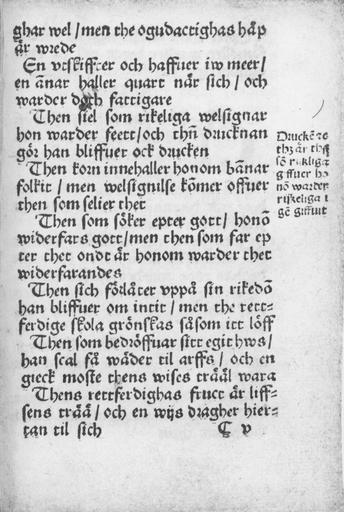 ghar wel / men the ogudactighas håp
är wrede
En vtskiffter och haffuer iw meer /
en ānar haller quart när sich / och
warder doch fattigare
Then siel som rikeliga welsignar
hon warder feett / och thn̄ drucknan
gör han bliffuer ock drucken
Then korn innehaller honom bānar
folkit / men welsignilse kōmer offuer
then som selier thet
Then som söker epter gott / honō
widerfars gott / men then som far ep
ter thet ondt är honom warder thet
widerfarandes
Then sich förläter vppå sin rikedō
han bliffuer om intit / men the rett⸗
ferdige skola grönskas såsom itt löff
Then som bedröffuar sitt egit hws /
han scal få wäder til arffs / och en
gieck moste thens wises träål wara
Thens rettferdighas fruct är liff⸗
sens träå / och en wijs dragher hier⸗
tan til sich
C v
Druckē
thz är
sō rikliga
giffuer ho
nō warder
rijkeliga i
gē giffuit